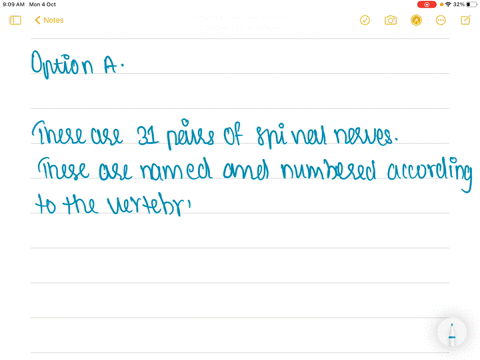 9:09 AM Mon 4 Oct
32%
Notes
Option A.
There are 31 pairs of spinal nerves.
These are named and numbered according
to the vertebr